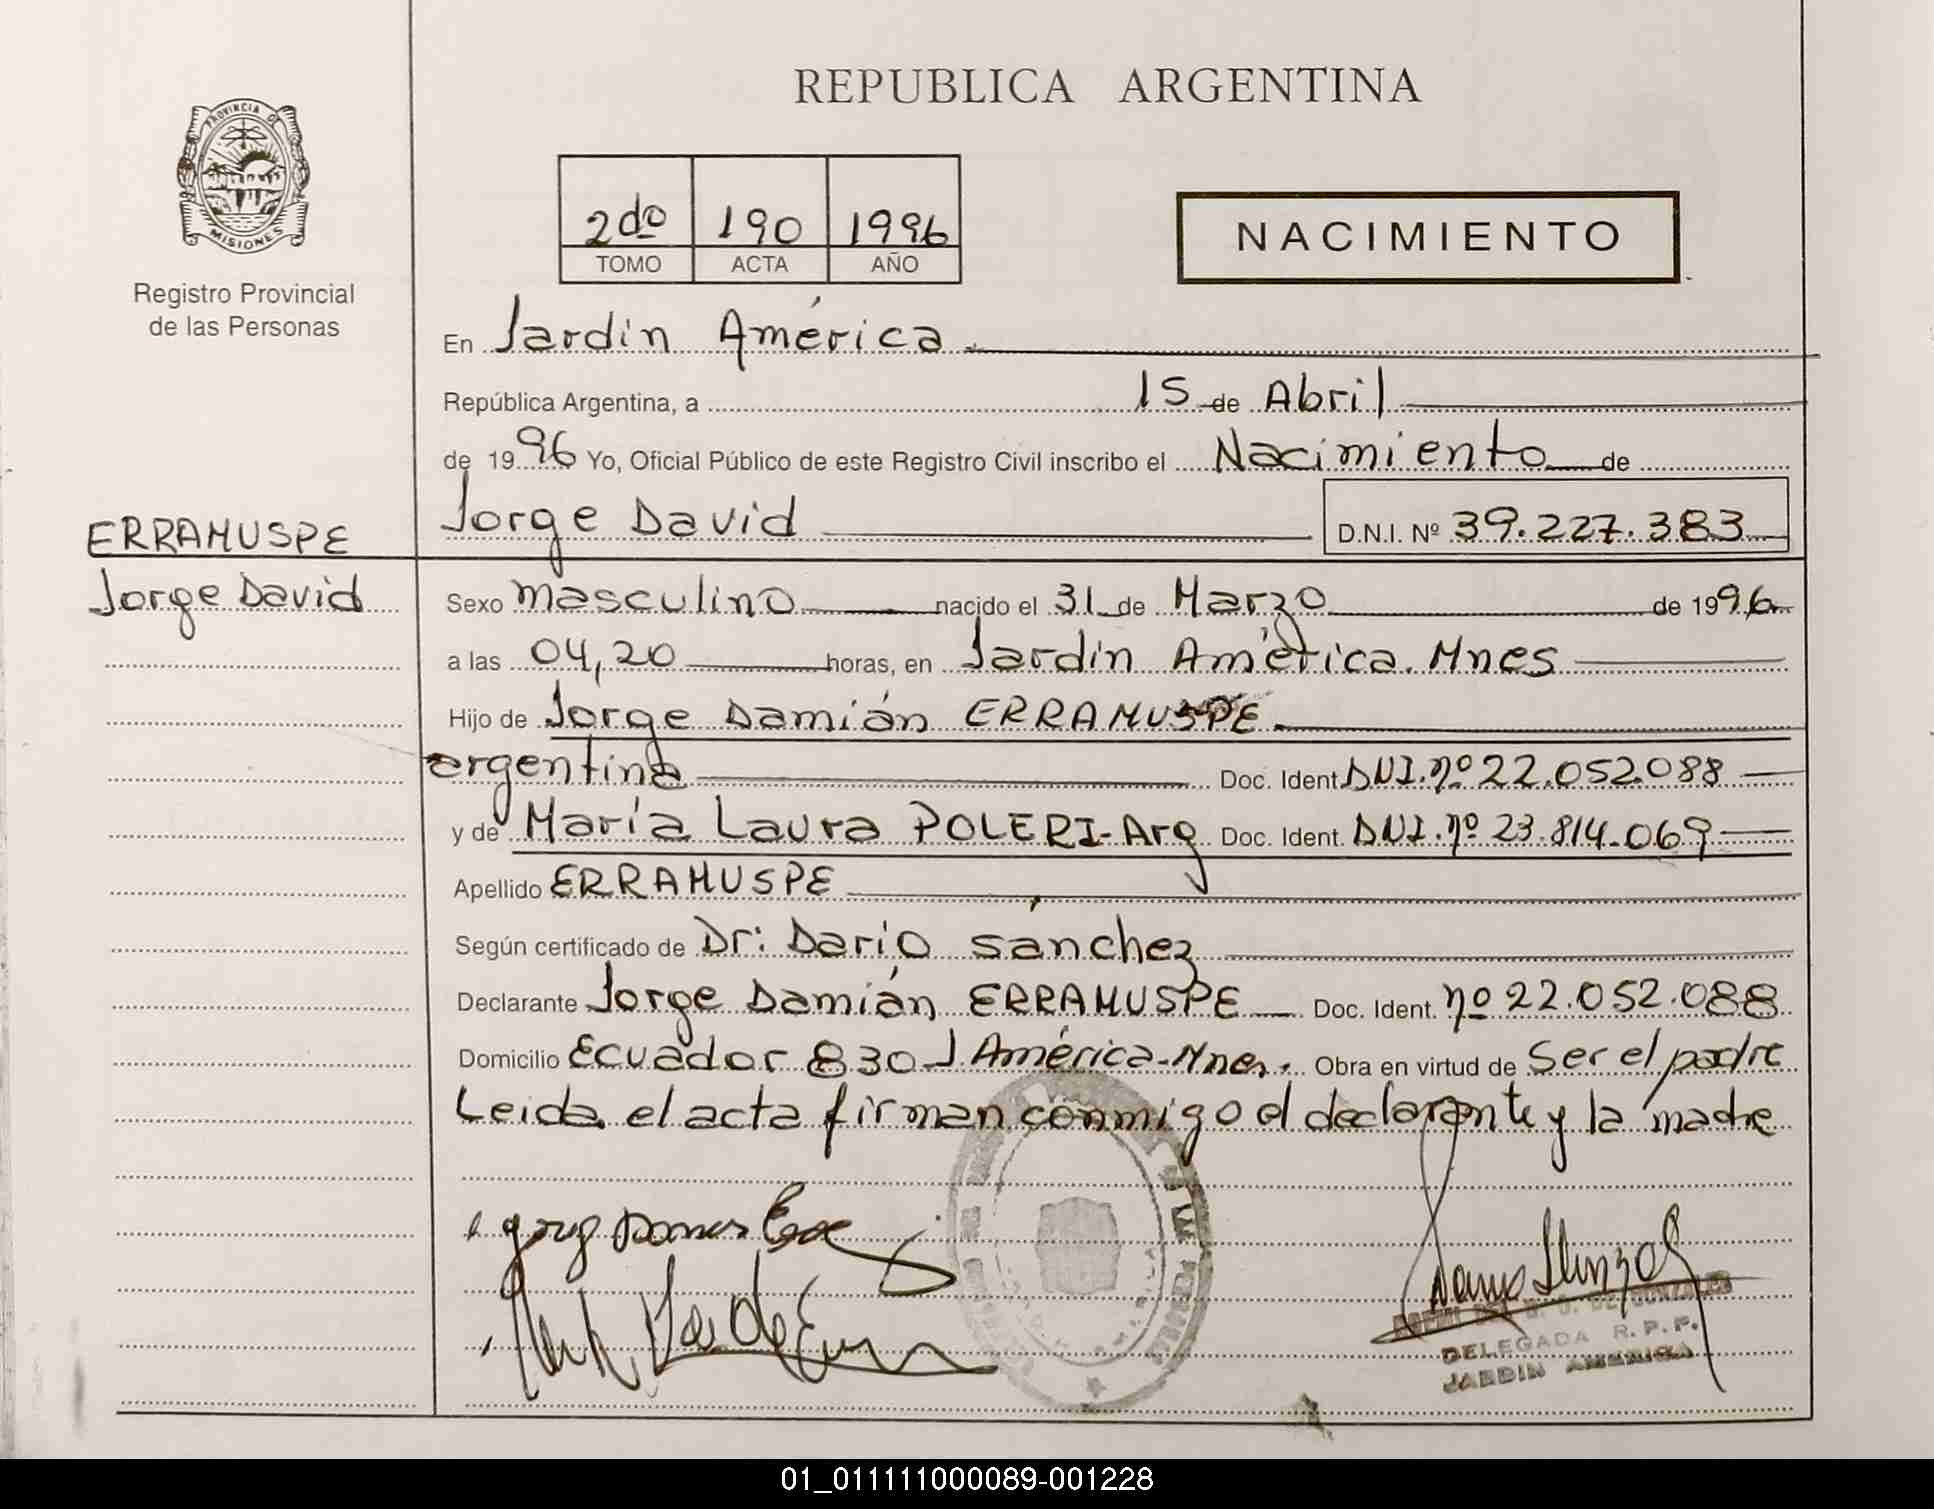 REPUBLICA ARGENTINA
PROVINCIA DE
MISIONES
Registro Provincial
de las Personas
2do 190 1996
TOMO ACTA AÑO
NACIMIENTO
En Jardín América
República Argentina, a 15 de Abril
de 1996 Yo, Oficial Público de este Registro Civil inscribo el Nacimiento de
ERRAMUSPE
Jorge David
Jorge David D.N.I. Nº 39.227.383
Sexo masculino nacido el 31 de Marzo de 1996
a las 04,20 horas, en Jardín América. Mnes
Hijo de Jorge Damián ERRAMUSPE
argentina Doc. Ident. DNI. nº 22.052.088
y de María Laura POLERI-Arg Doc. Ident. DNI. nº 23.814.069
Apellido ERRAMUSPE
Según certificado de Dr: Darío Sánchez
Declarante Jorge Damián ERRAMUSPE Doc. Ident. nº 22.052.088
Domicilio Ecuador 830 J. América-Mnes. Obra en virtud de Ser el padre
Leida el acta firman conmigo el declarante y la madre
DE GONZALEZ
DELEGADA R.P.P.
JARDIN AMERICA
01_011111000089-001228